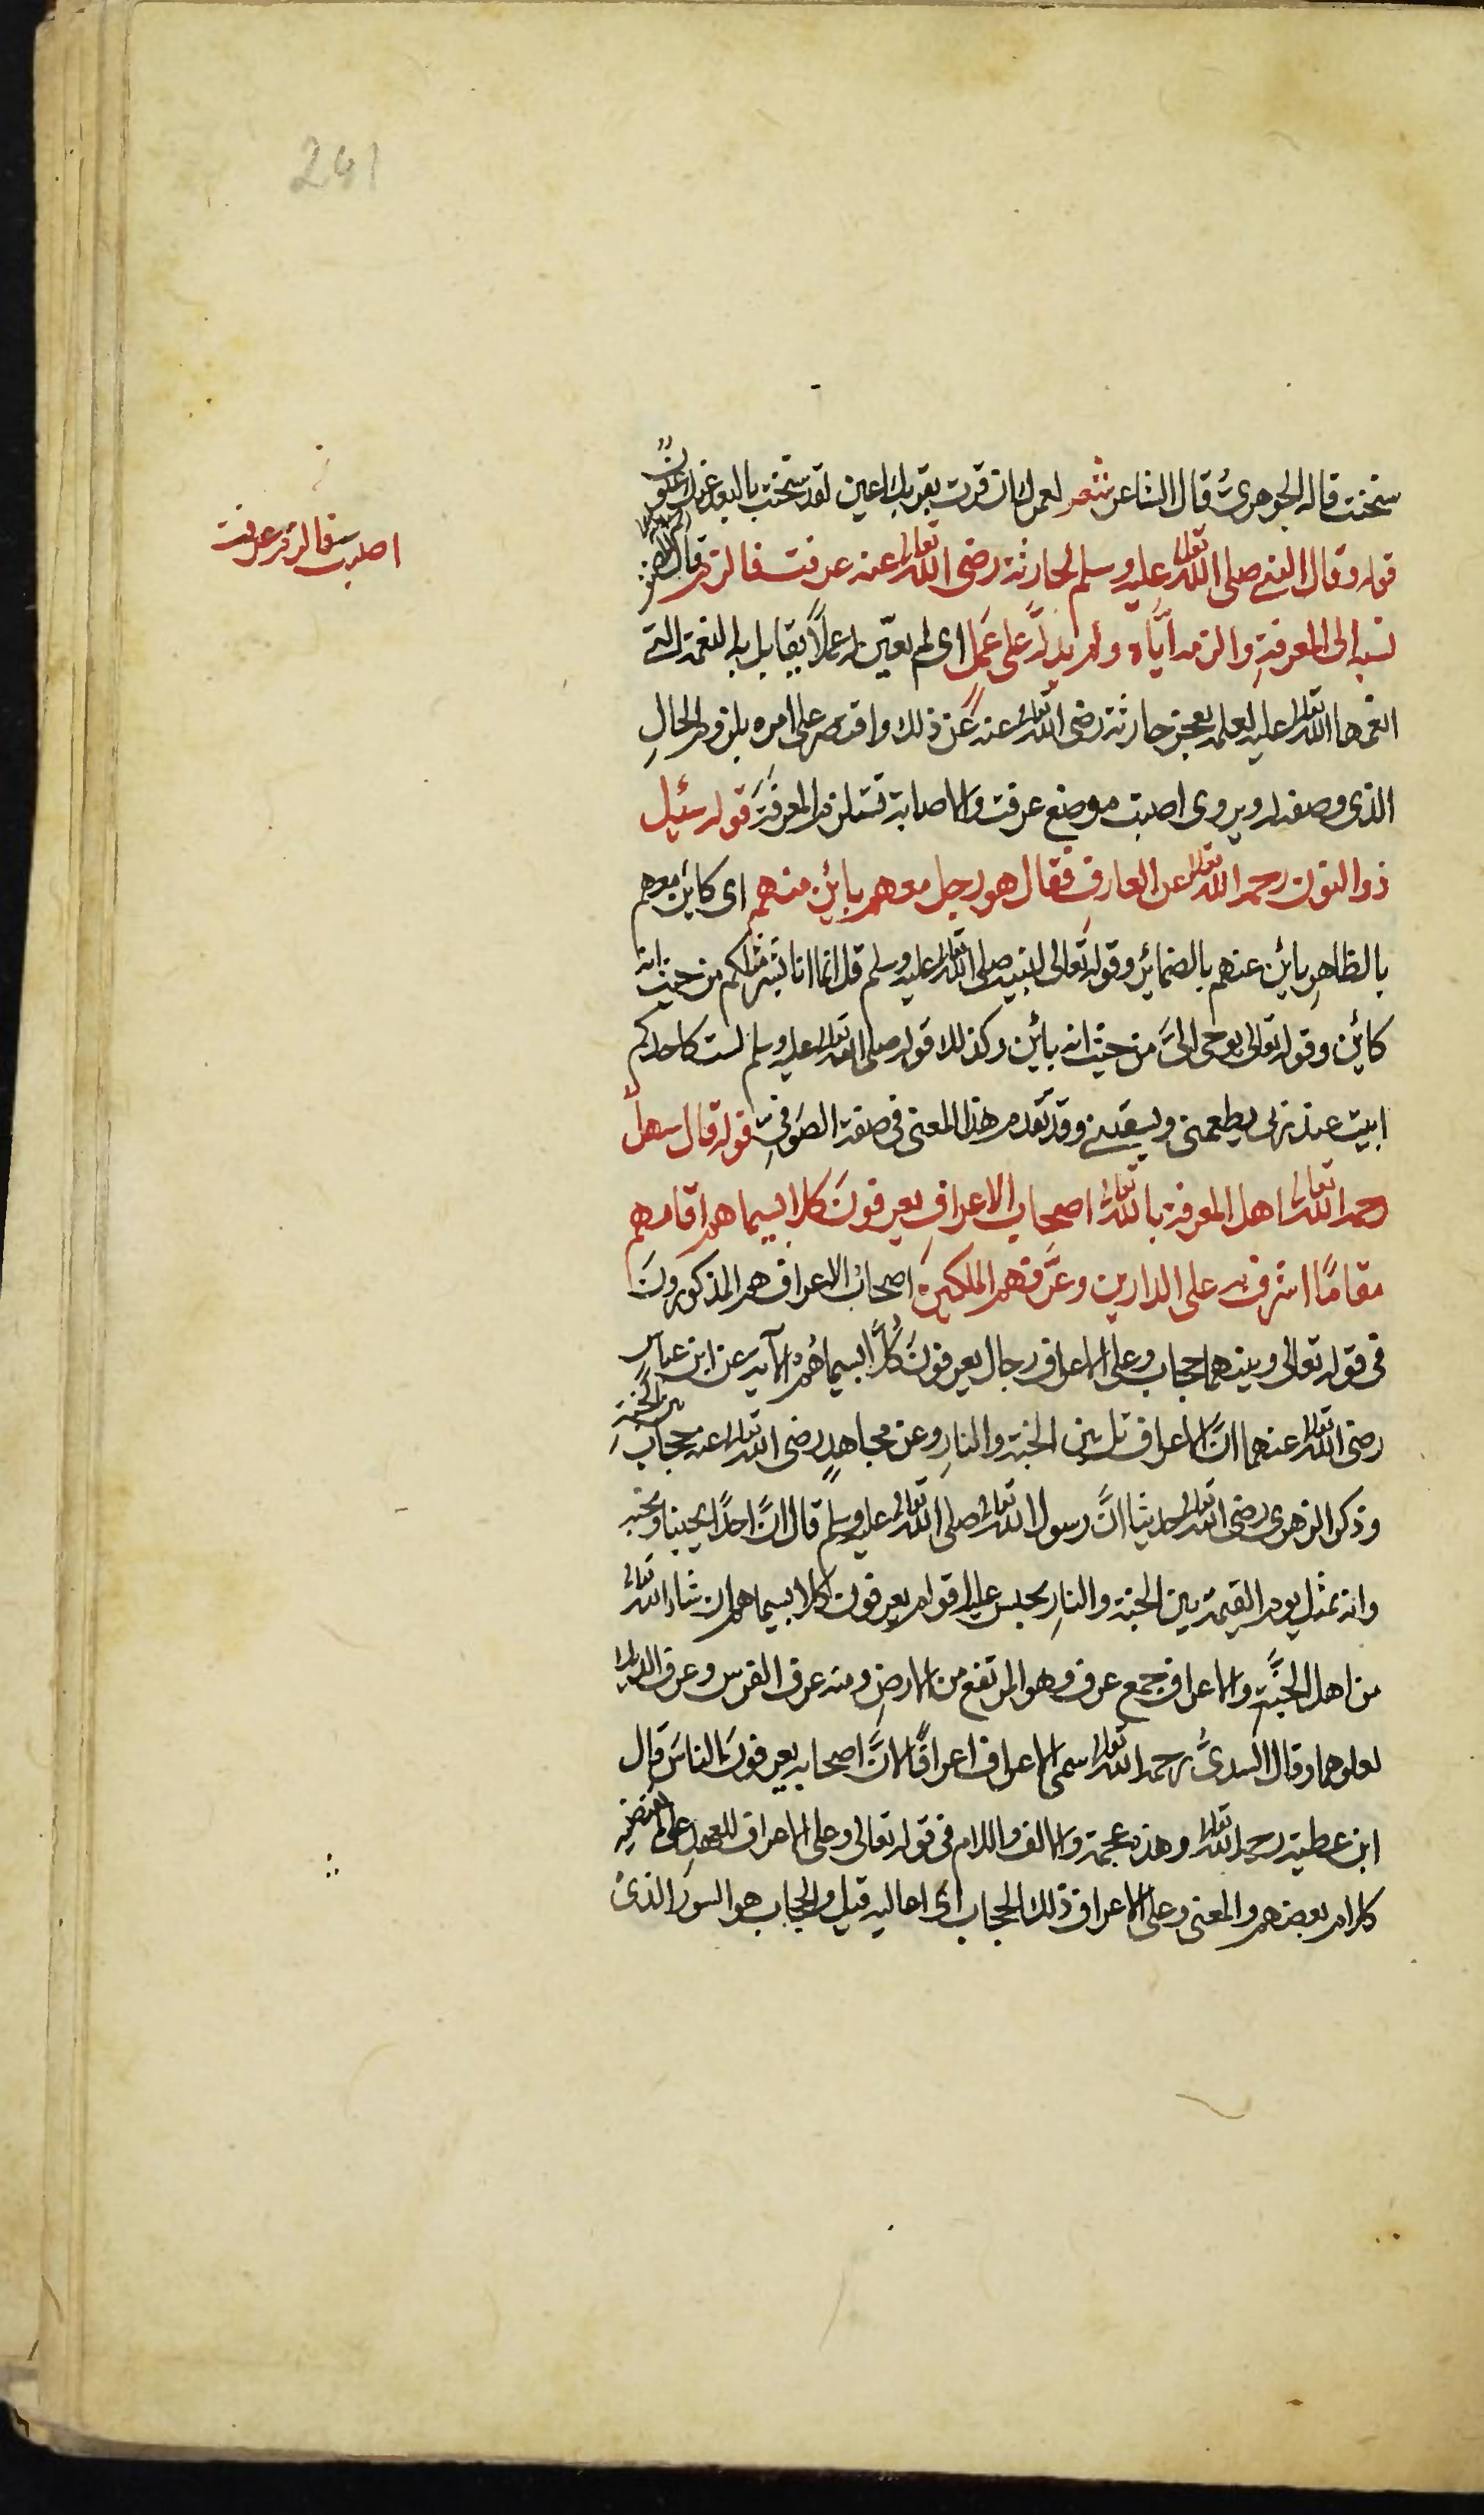 241
سخنت قاله الجوهريّ قال الشاعر شعر لعمرك ان قرت بقربك اعين لقد سخنت بالبعد عنك عيون
قوله وقال النبي صلى الله تعالى عليه وسلم لحارثة رضى الله تعالى عنه عرفت فالزم قال
اصبت فالزم عرفت
نسبه الى المعرفةِ والزمه ايّاه ولم يدلّه على عملٍ اى لم يعيّن له عملاً يقابل به النعمة التى
انعمها الله تعالى عليه لعلمه بعجز حارثة رضى الله تعالى عنه عن ذلك واقتصر على امره بلزوم الحالِ
الذى وصفه له ويروى اصبت موضع عرفت والاصابة تستلزم المعرفةَ قوله سئيل
ذو النون رحمه الله تعالى عن العارف فقال هو رجل معهم بائن منهم اى كائن معهم
بالظاهرِ بائن عنهم بالضمائر وقوله تعالى لنبيه صلى الله تعالى عليه وسلم قل انما انا بشر مثلكم من حيث انه
كائن وقوله تعالى يوحى الىّ من حيث انه بائن وكذلك قوله صلى الله تعالى عليه وسلم لست كاحدكم
ابيت عند ربى يطعمنى ويسقينى وقد تقدم هذا المعنى فى صفة الصوفىِ قوله قال سهلٌ
رحمه الله تعالى اهل المعرفة بالله تعالى اصحاب الاعراف يعرفونَ كلا بسيماهم اقامهم
مقامًا اشرف بهم على الدارين وعرّفهم الملكين اصحابُ الاعراف هم المذكورونَ
فى قوله تعالى وبينهما حجاب وعلى الاعراف رجال يعرفونَ كُلًّا بسيماهُم الآية عن ابن عباس
رضى الله تعالى عنهما انّ الاعراف تل بين الجنة والنارِ وعن مجاهدٍ رضى الله تعالى عنه حجاب بين الجنة
وذكر الزهرى رضى الله تعالى حديثا انَّ رسول الله تعالى صلى الله تعالى عليه وسلم قال انَّ احدًا يحبنا ونحبه
وانه يمثل يوم القيمة بين الجنة والنارِ يحبس عليه اقوام يعرفون كلا بسيماهم ان شاء الله تعالى
من اهل الجنّةِ والاعراف جمع عرف وهو المرتفع من الارضِ ومنه عرف الفرس وعرف الديك
لعلوهما وقال السدىُّ رحمه الله تعالى سمى الاعراف اعرافًا لانَّ اصحابه يعرفونَ الناسَ قال
ابن عطية رحمه الله تعالى وهذه عجمة والالف واللام فى قوله تعالى وعلى الاعراف للعهدِ على ما يقتضيه
كلام بعضهم والمعنى وعلى الاعراف ذلك الحجاب اى اعاليه قيل والحجاب هو السور الذى